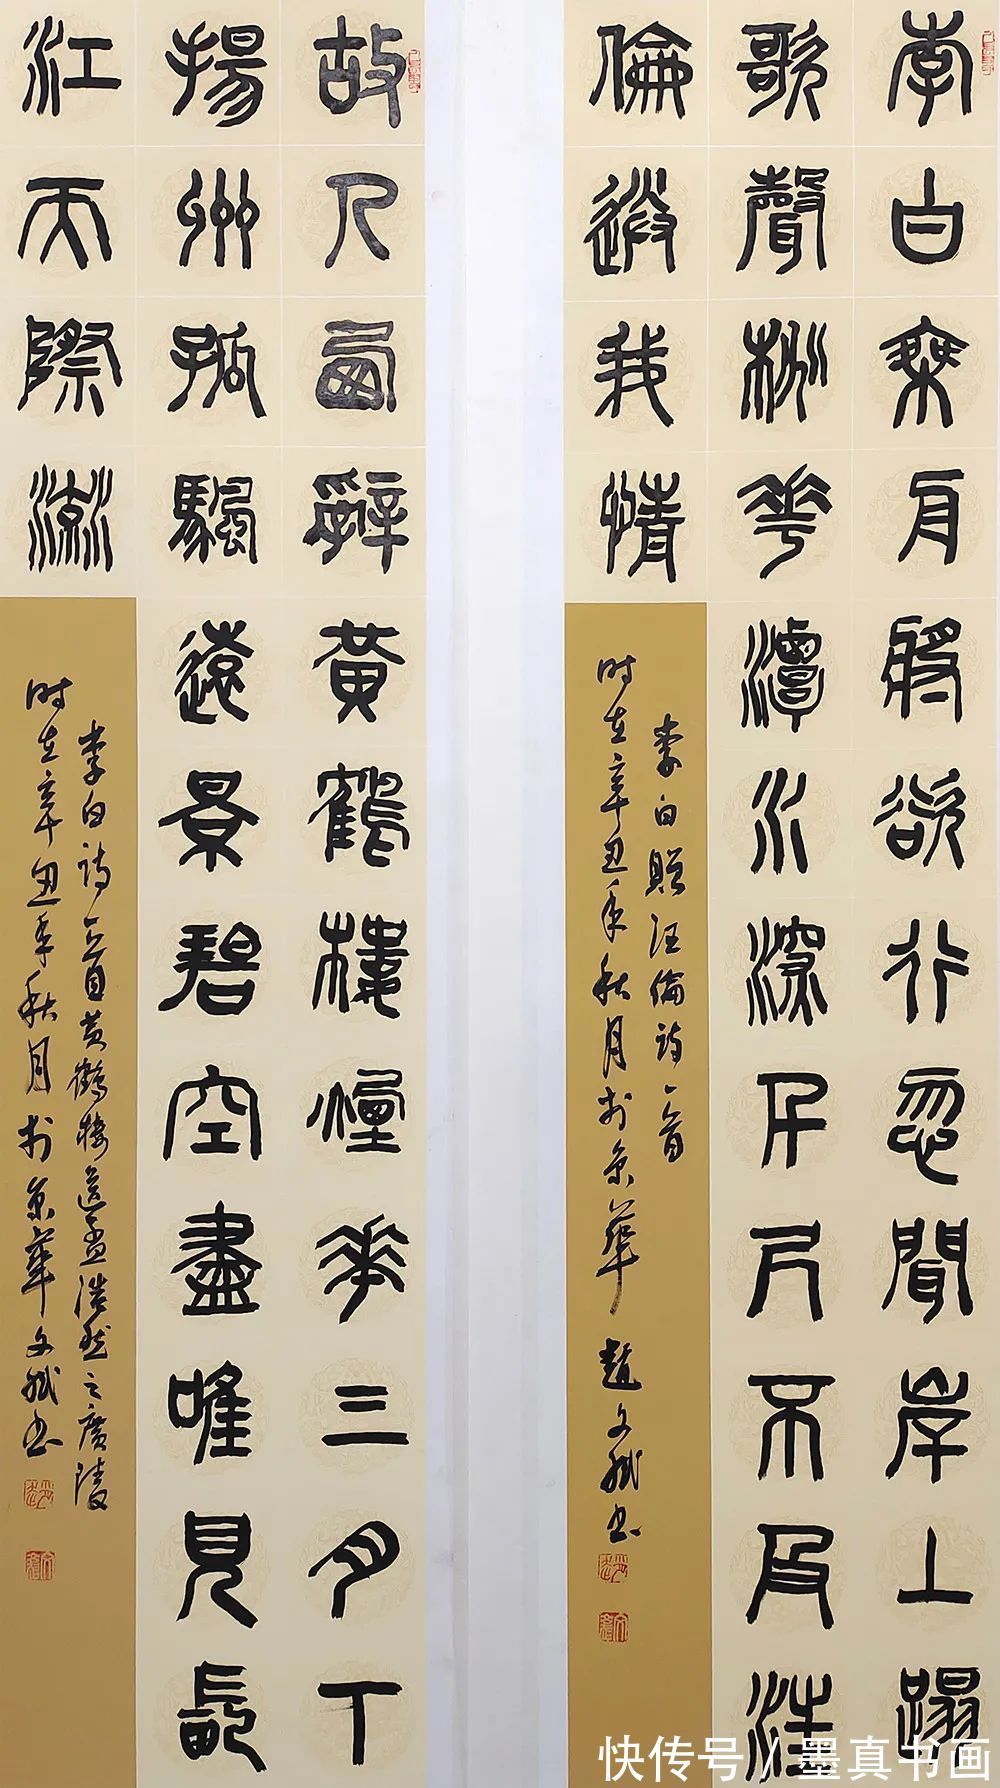 李白乘舟將欲行忽聞岸上蹋
歌聲桃花潭水深千尺不及汪
倫送我情
李白贈汪倫詩一首
时在辛丑年秋月於京華趙文斌書
故人西辭黃鶴樓煙花三月下
揚州孤颿遠景碧空盡唯見長
江天際流
李白詩一首黃鶴樓送孟浩然之廣陵
时在辛丑年秋月於京華文斌書
快传号/墨真书画